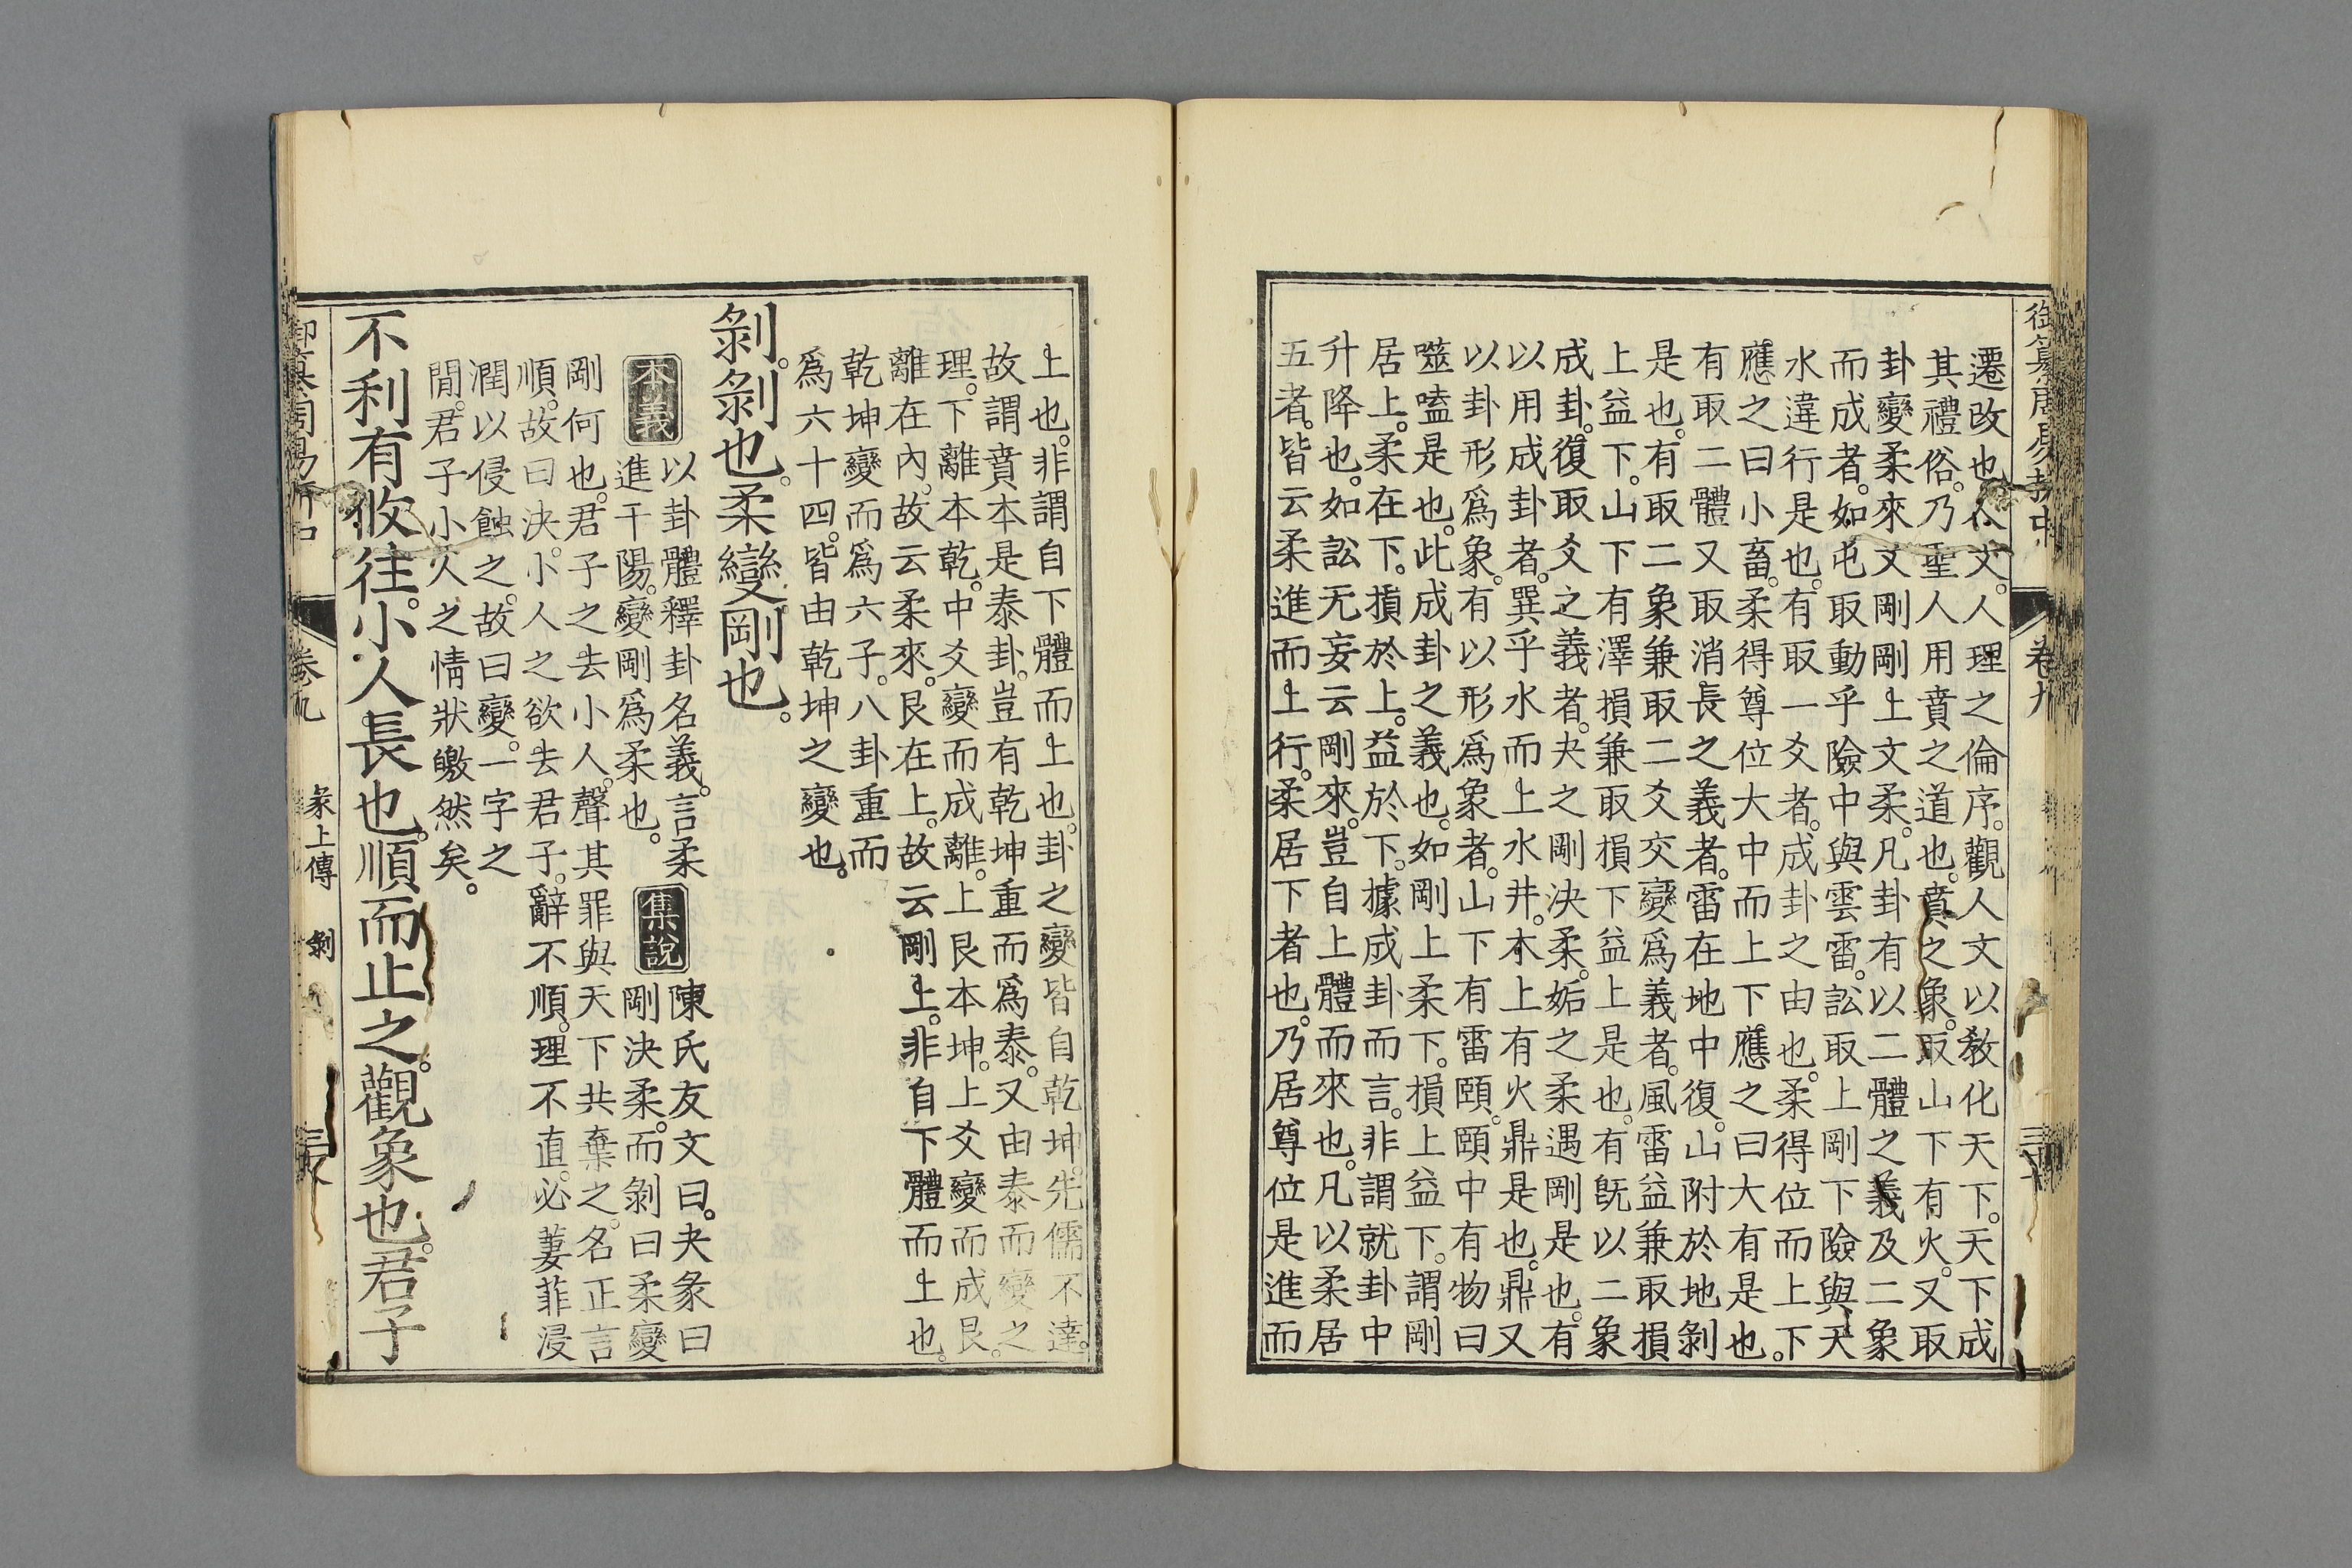 御纂周易折中 卷九
遷改也。人文。人理之倫序。觀人文以敎化天下。天下成
其禮俗。乃聖人用賁之道也。賁之象。取山下有火。又取
卦變柔來文剛剛上文柔。凡卦有以二體之義及二象
而成者。如屯取動乎險中與雲雷。訟取上剛下險與天
水違行是也。有取一爻者。成卦之由也。柔得位而上下
應之曰小畜。柔得尊位大中而上下應之曰大有是也。
有取二體又取消長之義者。雷在地中復。山附於地剝
是也。有取二象兼取二爻交變爲義者。風雷益兼取損
上益下。山下有澤損兼取損下益上是也。有旣以二象
成卦。復取爻之義者。夬之剛決柔。姤之柔遇剛是也。有
以用成卦者。巽乎水而上水井。木上有火鼎是也。鼎又
以卦形爲象。有以形爲象者。山下有雷頤。頤中有物曰
噬嗑是也。此成卦之義也。如剛上柔下。損上益下。謂剛
居上。柔在下。損於上。益於下。據成卦而言。非謂就卦中
升降也。如訟无妄云剛來。豈自上體而來也。凡以柔居
五者。皆云柔進而上行。柔居下者也。乃居尊位是進而
上也。非謂自下體而上也。卦之變皆自乾坤。先儒不達。
故謂賁本是泰卦。豈有乾坤重而爲泰。又由泰而變之
理。下離本乾。中爻變而成離。上艮本坤。上爻變而成艮。
離在內。故云柔來。艮在上。故云剛上。非自下體而上也。
乾坤變而爲六子。八卦重而
爲六十四。皆由乾坤之變也。
剝。剝也。柔變剛也。
本義 以卦體釋卦名義。言柔
進干陽。變剛爲柔也。
集說 陳氏友文曰。夬彖曰
剛決柔。而剝曰柔變
剛何也。君子之去小人。聲其罪與天下共棄之。名正言
順。故曰決。小人之欲去君子。辭不順。理不直。必萋菲浸
潤以侵蝕之。故曰變。一字之
閒。君子小人之情狀皦然矣。
不利有攸往。小人長也。順而止之。觀象也。君子
卷九 彖上傳 剝